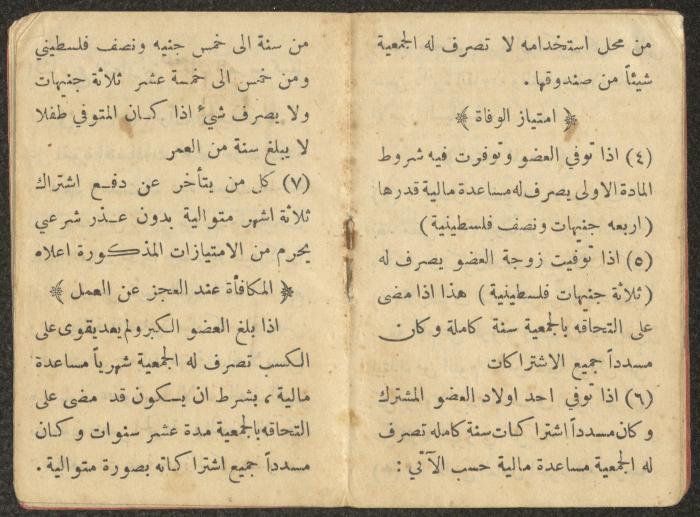 من محل استخدامه لا تصرف له الجمعية
شيئاً من صندوقها .
﴿ امتياز الوفاة ﴾
(٤) اذا توفي العضو وتوفرت فيه شروط
المادة الاولى يصرف له مساعدة مالية قدرها
( اربعه جنيهات ونصف فلسطينية )
(٥) اذا توفيت زوجة العضو يصرف له
( ثلاثة جنيهات فلسطينية ) هذا اذا مضى
على التحاقه بالجمعية سنة كاملة وكان
مسدداً جميع الاشتراكات
(٦) اذا توفي احد اولاد العضو المشترك
وكان مسدداً اشتراكات سنة كامله تصرف
له الجمعية مساعدة مالية حسب الآتي :
من سنة الى خمس جنيه ونصف فلسطيني
ومن خمس الى خمسة عشر ثلاثة جنيهات
ولا يصرف شيء اذا كان المتوفي طفلا
لا يبلغ سنة من العمر
(٧) كل من يتأخر عن دفع اشتراك
ثلاثة اشهر متوالية بدون عذر شرعي
يحرم من الامتيازات المذكورة اعلاه
﴿ المكافأة عند العجز عن العمل ﴾
اذا بلغ العضو الكبر ولم يعد يقوى على
الكسب تصرف له الجمعية شهرياً مساعدة
مالية ، بشرط ان يكون قد مضى على
التحاقه بالجمعية مدة عشر سنوات وكان
مسدداً جميع اشتراكاته بصورة متوالية .